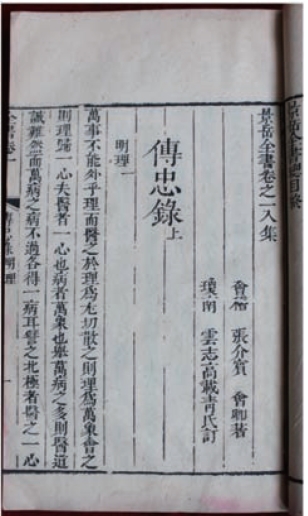 景岳全書總目終
景岳全書卷之一入集
會稽 張介賓 會卿著
瓊南 雲志高載青氏訂
傳忠錄上
明理一
萬事不能外乎理而醫之於理爲尤切散之則理爲萬象會之
則理歸一心夫醫者一心也病者萬象也舉萬病之多則醫道
誠難然而萬病之病不過各得一病耳譬之北極者醫之一心
全書卷一 傳忠錄明理 一